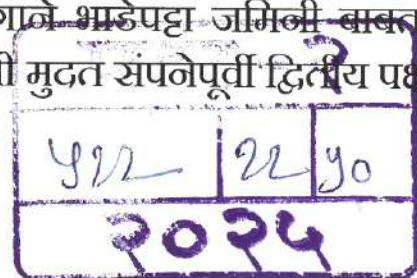 गाने भाडेपट्टा जमिनी बाबत
ी मुदत संपनेपूर्वी द्वितीय पक्ष
२२ ५०
२०२५